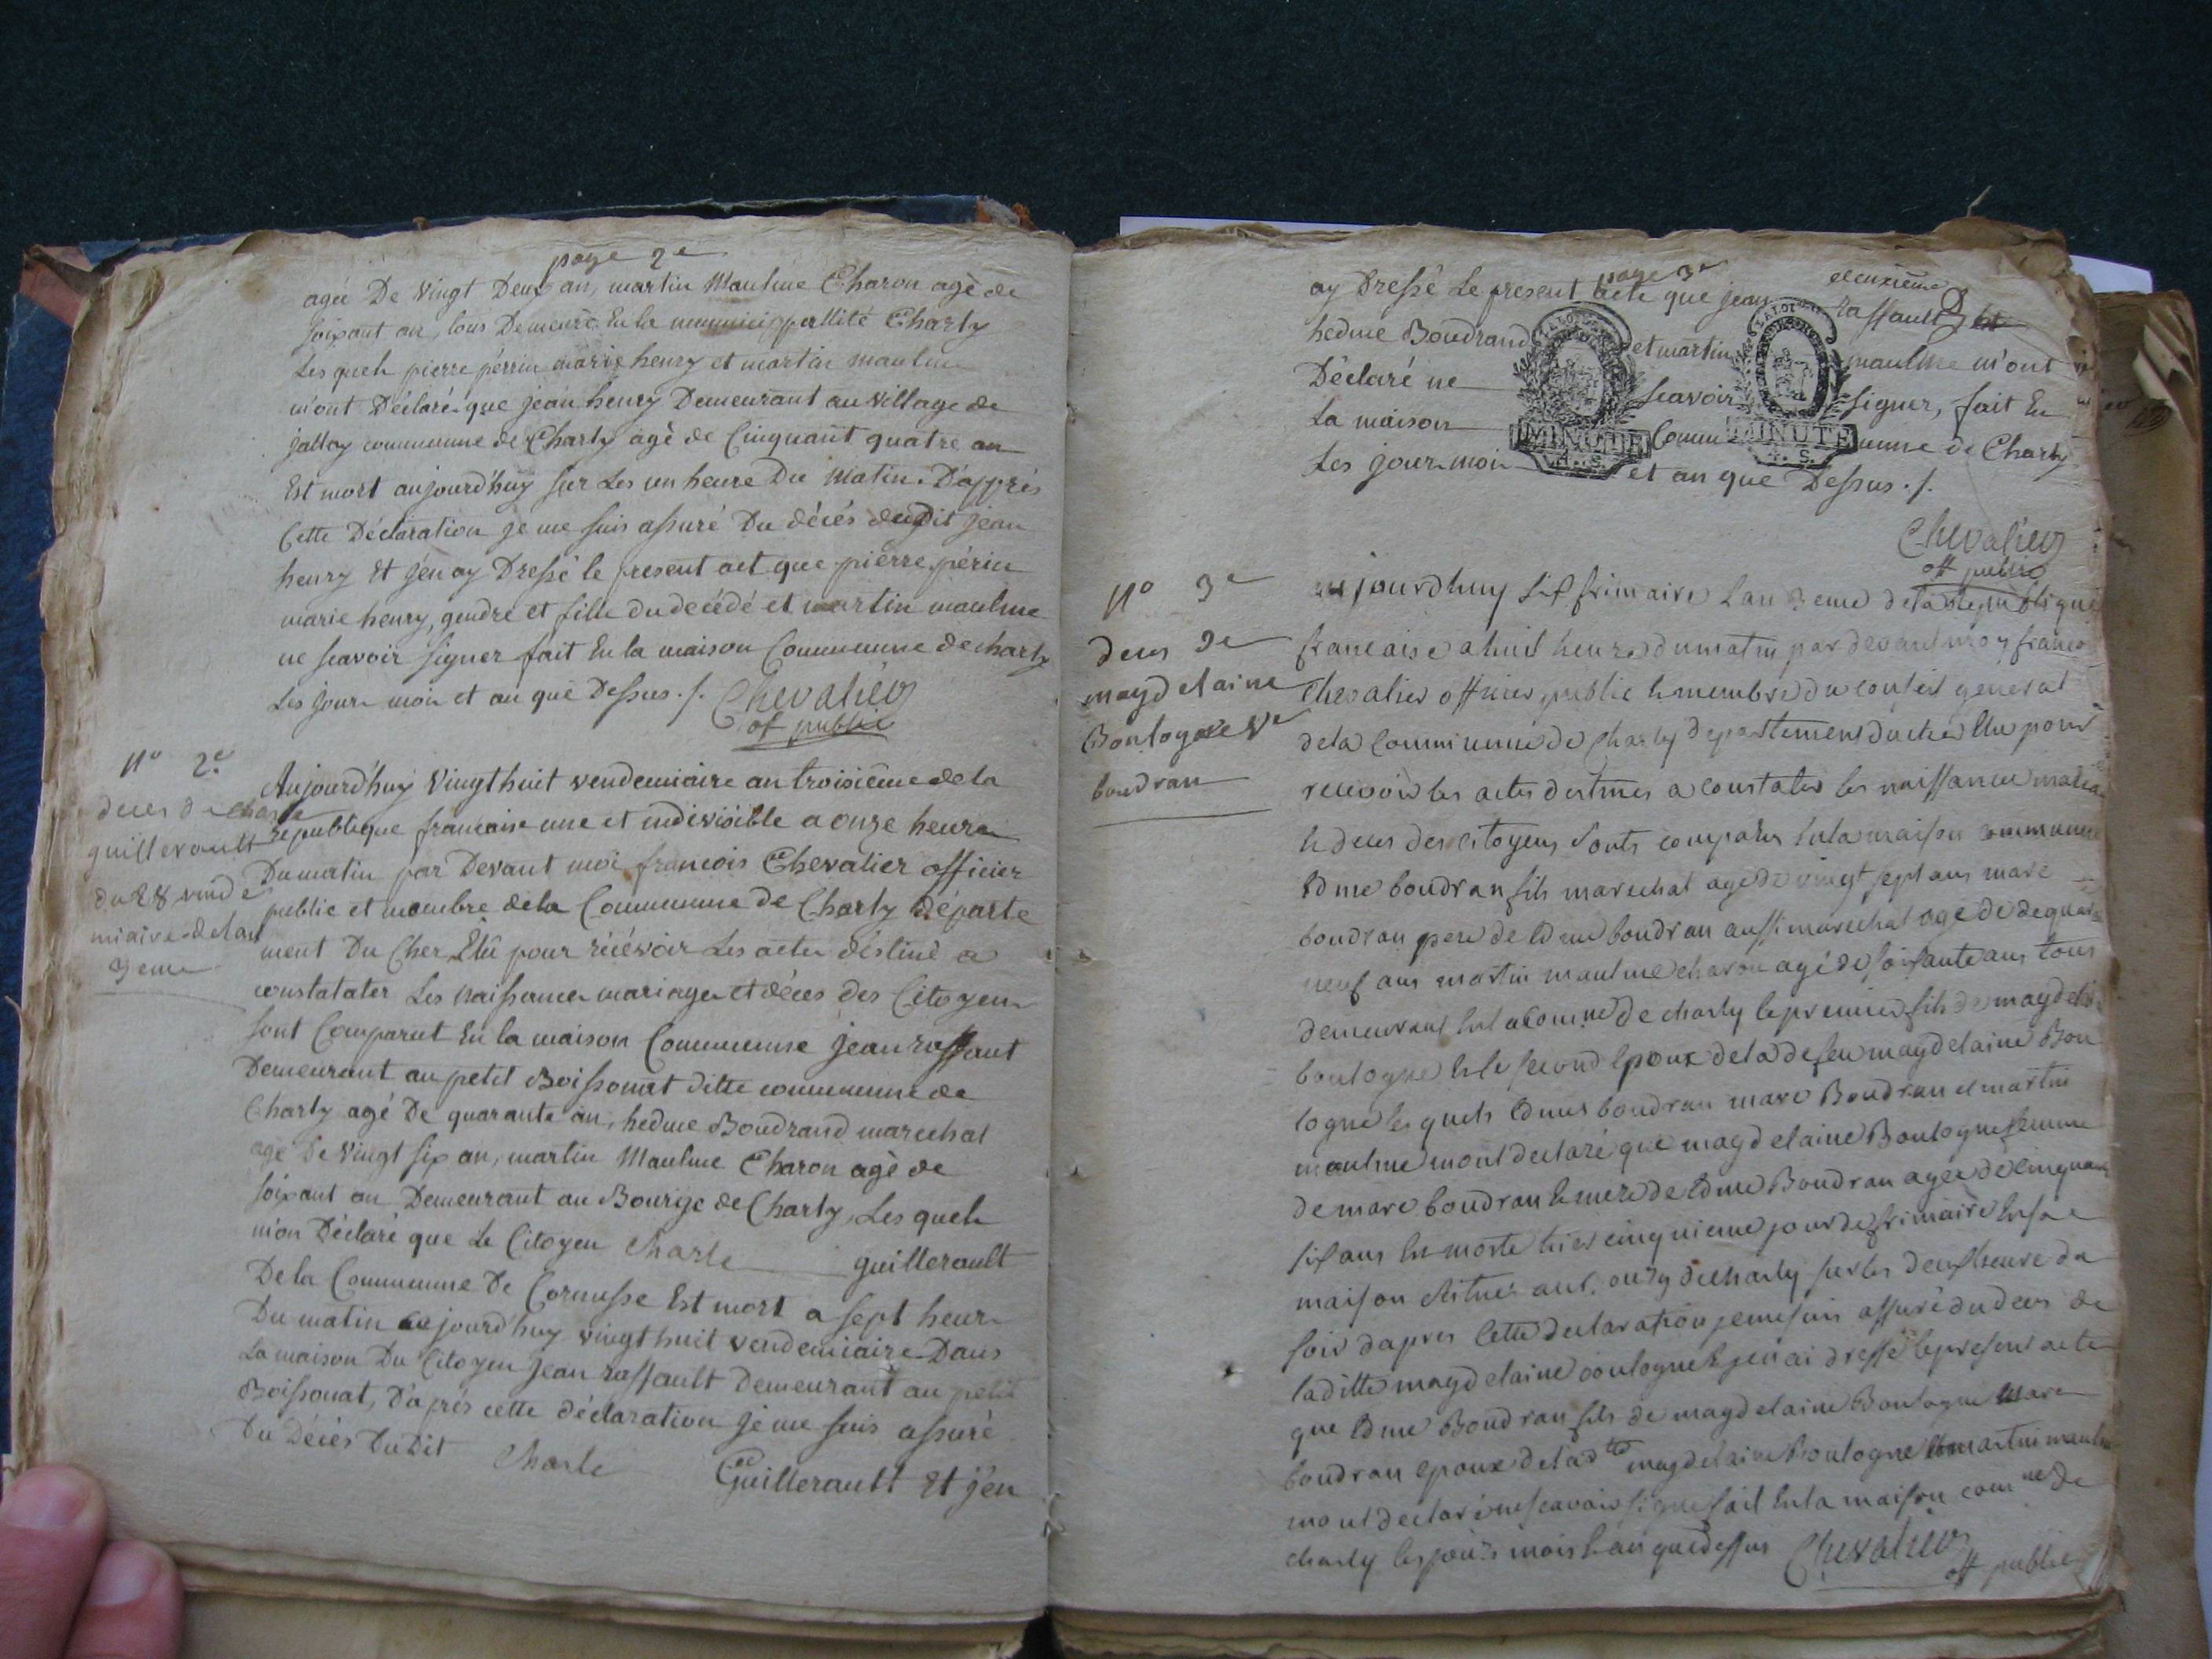 page 2e
agée De Vingt Deux an, martin Maulme Charon agé de
soixant an, tous Demeure En la municippallité Charly
Les quels pierre perrin marie henry et martin maulme
m'ont Déclaré que jean henry Demeurant au village de
jalloy commune de Charly agé de Cinquant quatre an
Est mort aujourd'huy sur Les un heure Du Matin. D'apprés
Cette Déclaration je me suis assuré Du décés dudit jean
henry Et j'en ay Dressé le present act que pierre périn
marie henry, gendre et fille du decédé et martin maulme
ne scavoir signer fait En la maison Commune de charly
Les jour moi et an que Dessus ./. Chevalier
of public
No 2e
deces de Charle
guillerault
du 28 vende
miaire de lan
3eme
Aujourd'huy Vingt huit vendemiaire an troisième de la
republique francaise une et indivisible a onze heure
Du matin par Devant moi francois Chevalier officier
public et membre de la Commune de Charly départe
ment Du Cher, Élû pour récévoir Les actes déstiné a
constatater Les Naissance mariage et déces des Citoyen
sont Comparut En la maison Commune jean raffault
Demeurant au petit Boissonat ditte commune de
Charly agé De quarante an, hedme Boudrand marechal
agé De Vingt six an, martin Maulme Charon agé de
soixant an Demeurant au Bourge de Charly, Les quels
m'on Déclaré que Le Citoyen Charle guillerault
De la Commune De Cornusse Est mort a sept heur
Du matin aujourd'huy vingt huit vendemiaire Dans
La maison Du Citoyen jean raffault Demeurant au petit
Boissonat, D'aprés cette déclaration je me suis assuré
Du Décés Du Dit Charle Guillerault Et j'en
page 3e
deuxieme
ay Dressé Le present acte que jean raffault
hedme Boudrand et martin maulme m'ont
Déclaré ne scavoir signer, fait En
La maison Commune de Charly
Les jour moi et an que Dessus ./.
LA LOI
MINUTE
LA LOI
MINUTE
Chevalier
off public
No 3e
deces De
magdelaine
Boulogne Ve
boudran
aujourdhuy six frimaire lan 3eme de la republique
francaise a huit heure du matin par devant moy franco
Chevalier officier public & membre du conseil general
de la Commune de Charly departement du cher Elu pour
recevoir les actes destines a constater les naissance maria
& deces des citoyens sonts comparus En la maison commune
Edme boudran fils marechal age de vingt sept ans marc
boudran pere de Edme boudran aussi marechal agé de de quar
neuf ans martin maulme charon agé de soixante ans tous
demeurant En la comne de charly le premier fils de magdel
boulogne & le second Epoux de la defeu magdelaine Bou
logne les quels Edmes boudran marc Boudran et martin
maulme mont declaré que magdelaine Boulogne femme
de marc boudran & mere de Edme Boudran agée de cinquan
six ans Est morte hier cinquieme jour de frimaire En sa
maison scituée au bourg de charly sur les deux heure du
soir dapres Cette declaration je me suis assuré du deces de
la ditte magdelaine boulogne & jen ai dressé le present acte
que Edme Boudran fils de magdelaine Boulogne Marc
boudran epoux de la dte magdelaine Boulogne & martin maulm
mont declaré ne scavoir signe fait En la maison comne de
charly les jours mois & an que dessus Chevalier
off public